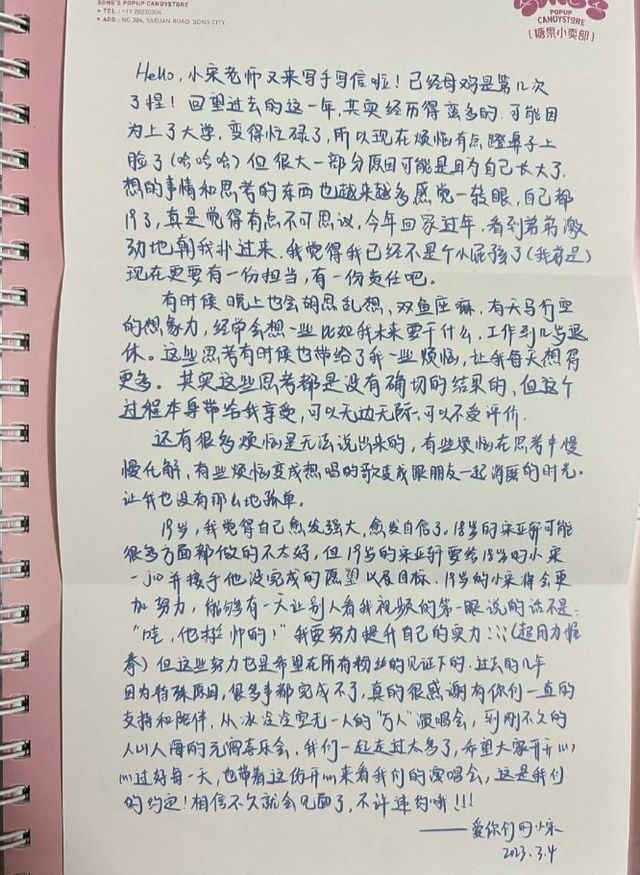 SONG'S POPUP CANDYSTORE
• TEL.: +17 20230304
• ADD.: NO.304, YAXUAN ROAD, SONG CITY.
POPUP
CANDYSTORE
[糖果小卖部]
Hello, 小宋老师又来写手写信啦！已经母鸡是第几次
了惺！回望过去的这一年，其实经历得蛮多的. 可能因
为上了大学，变得忙碌了，所以现在烦恼有点蹬鼻子上
脸了(哈哈哈) 但很大一部分原因可能是因为自己长大了.
想的事情和思考的东西也越来越多感觉一转眼，自己都
19了，真是觉得有点不可思议，今年回家过年，看到弟弟激
动地朝我扑过来，我觉得我已经不是个小屁孩了(我前是)
现在更要有一份担当，有一份责任吧。
有时候晚上也会胡思乱想，双鱼座嘛，有天马行空
的想象力，经常会想一些比如我未来要干什么，工作到几岁退
休。这些思考有时候也带给了我一些烦恼，让我每天想得
更多。其实这些思考都是没有确切的结果的，但这个
过程本身带给我享受，可以无边无际，可以不受评价.
还有很多烦恼是无法说出来的，有些烦恼在思考中慢
慢化解，有些烦恼变成想唱的歌变成跟朋友一起消匿的时光.
让我也没有那么地孤单。
19岁，我觉得自己愈发强大，愈发自信了。18岁的宋亚轩可能
很多方面都做的不太好，但19岁的宋亚轩要给18岁的小宋
一jio并接手他没完成的愿望以及目标. 19岁的小宋将会更
加努力，能够有一天让别人看我视频的第一眼说的话不是：
“哇，他挺帅的！”我要努力提升自己的实力 (超用力握
拳) 但这些努力也是希望在所有粉丝的见证下的. 过去的几年
因为特殊原因，很多事都完成不了，真的很感谢有你们一直的
支持和陪伴，从冰冷空无一人的“万人”演唱会，到刚不久的
人山人海的元宵喜乐会，我们一起走过太多了，希望大家开开心
心过好每一天，也带着这份开心来看我们的演唱会，这是我们
的约定！相信不久就会见面了，不许违约哦！！！
——爱你们的小宋
2023.3.4